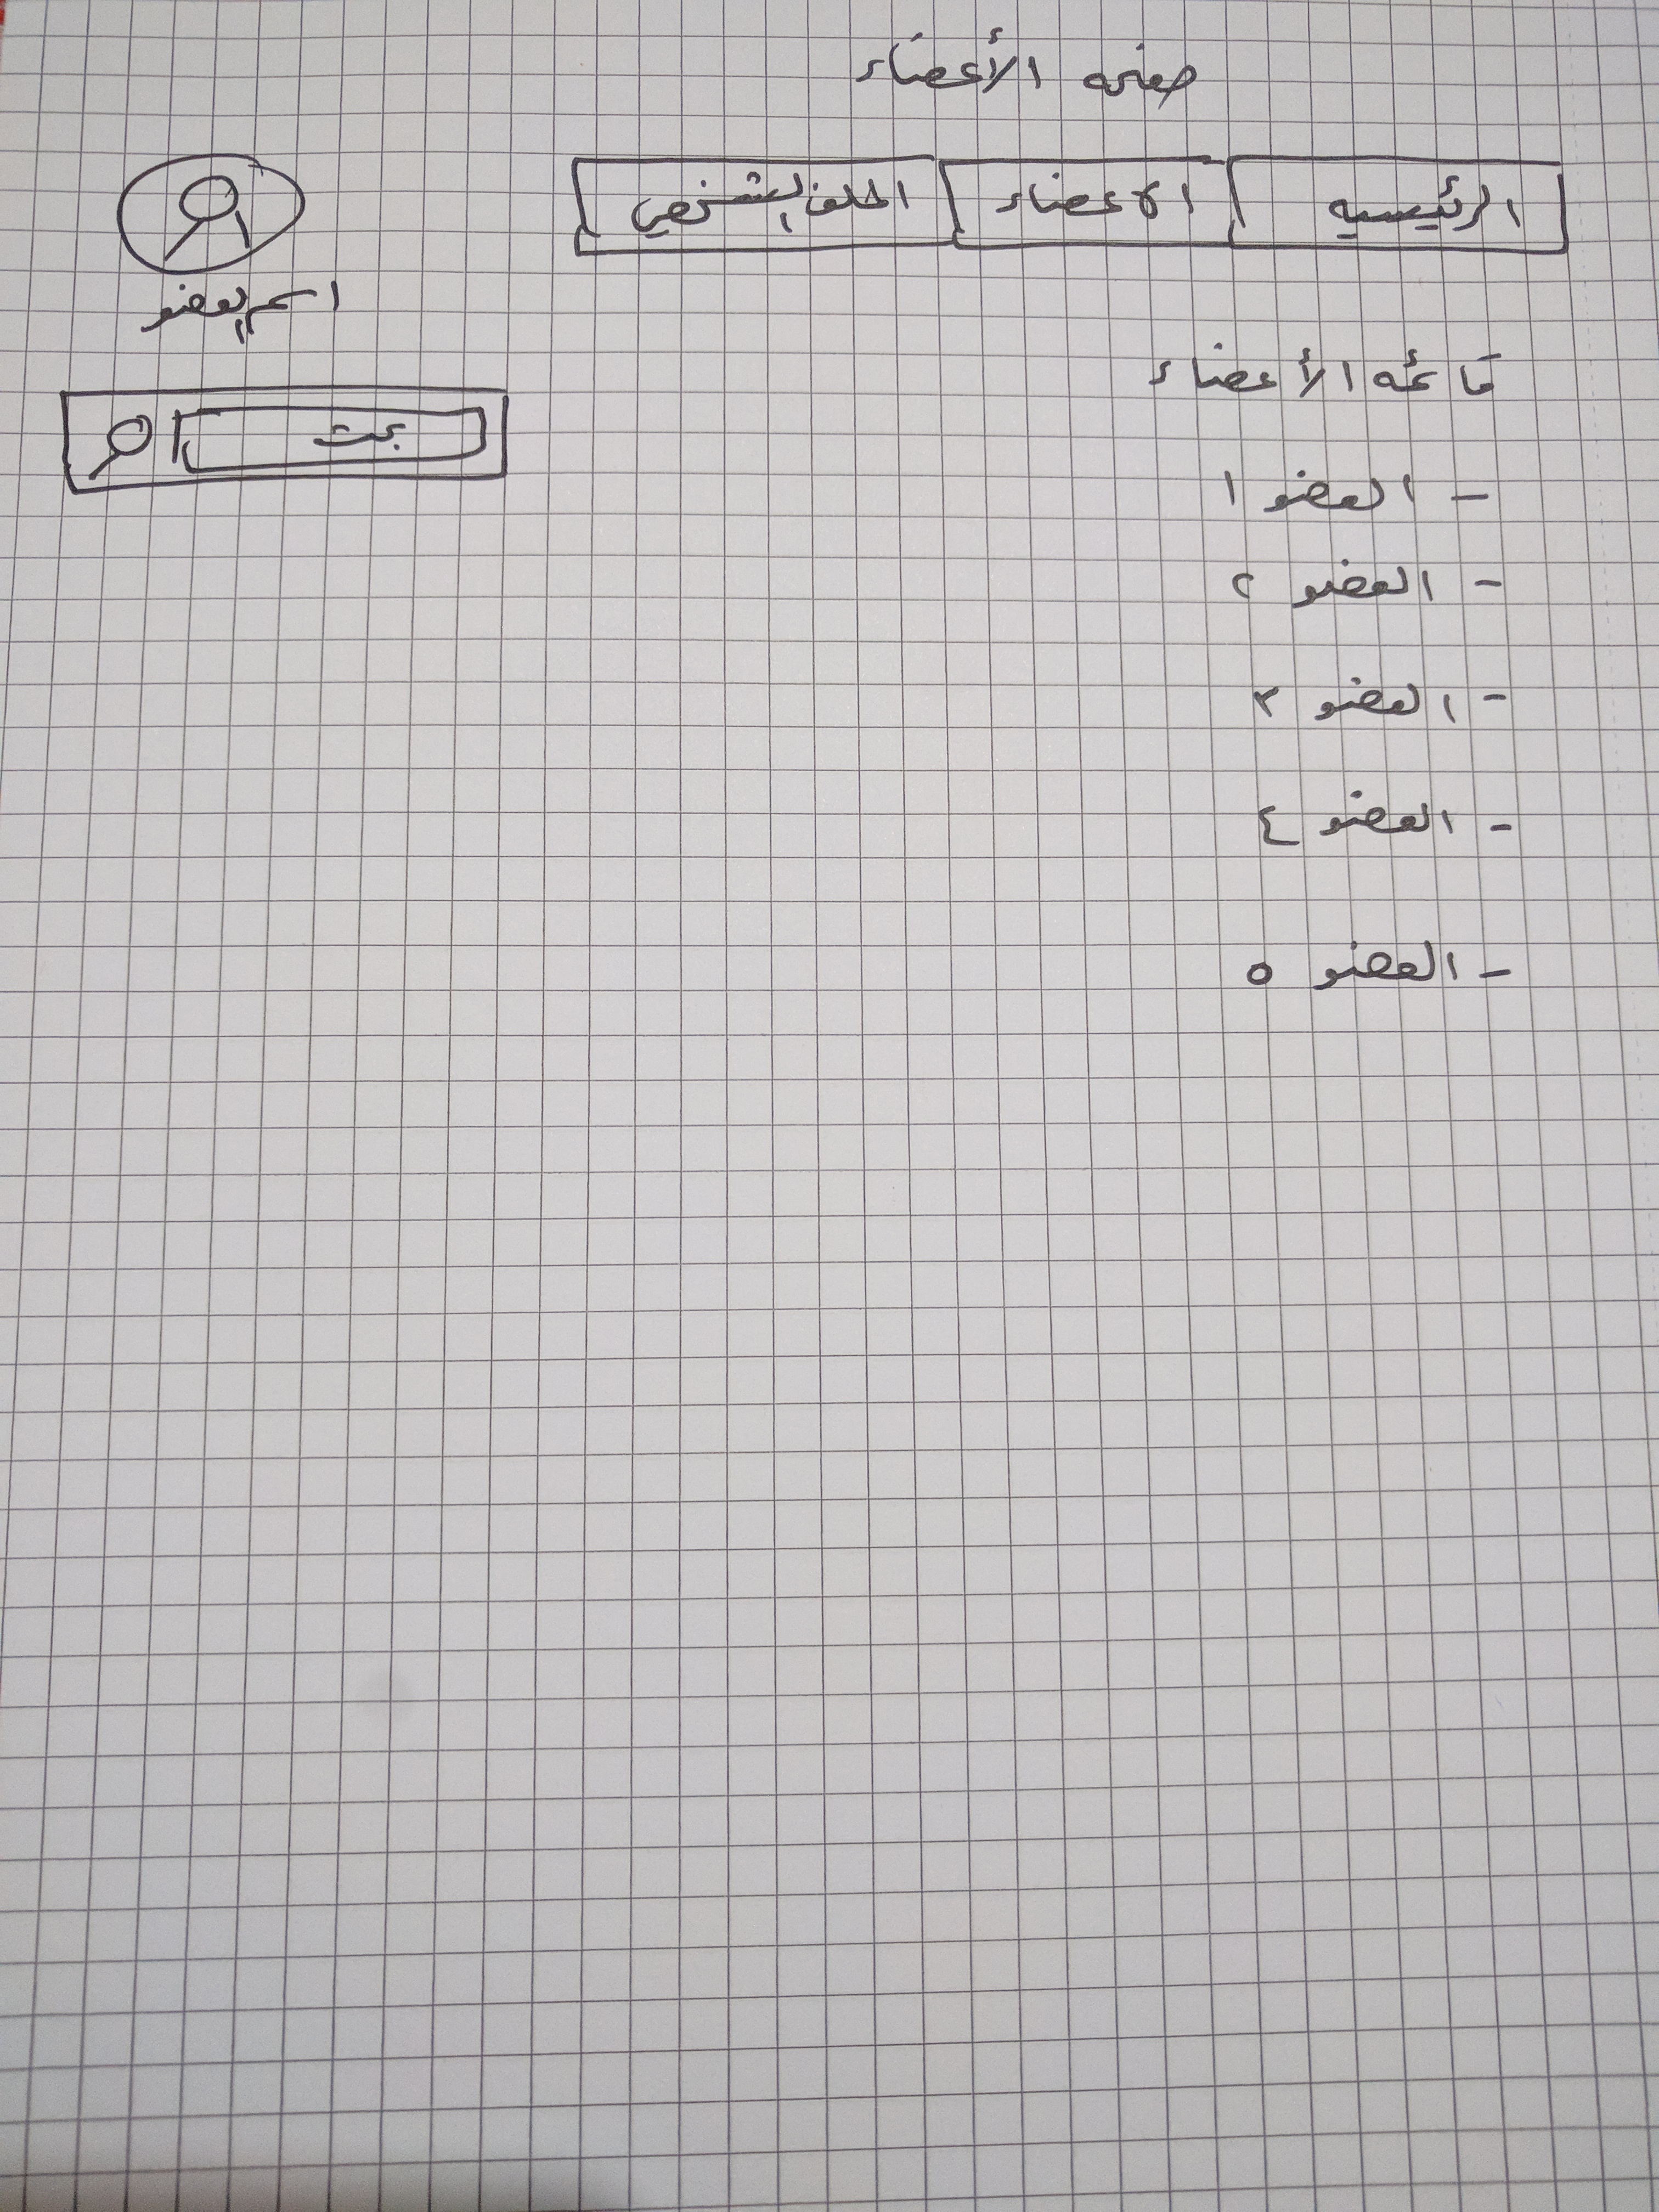 صفحه الأعضاء
الرئيسيه
الاعضاء
الملف الشخصي
اسم العضو
قائمه الأعضاء
بحث
- العضو ١
- العضو ٢
- العضو ٣
- العضو ٤
- العضو ٥